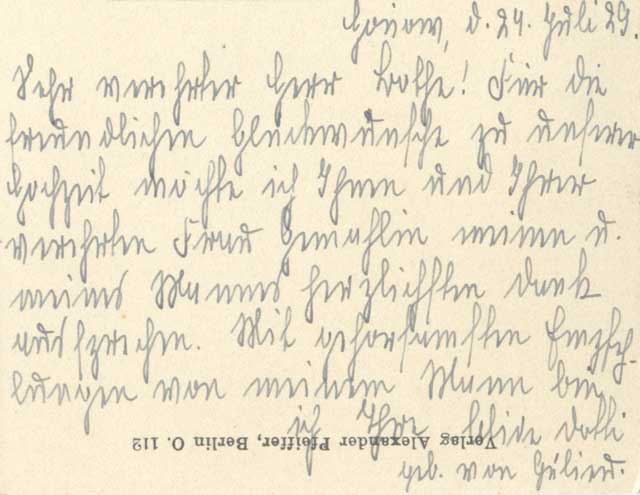 d. 24. Juli 29.
Sehr verehrter Herr Bothe! Für die
freundlichen Glückwünsche zu unserer
Hochzeit möchte ich Ihnen und Ihrer
verehrten Frau Gemahlin meinen u.
meines Mannes herzlichsten Dank
aussprechen. Mit gehorsamsten Empfeh-
lungen von meinem Mann bin
ich Ihre
geb. von Gélieu.
Verlag Alexander Pfeiffer, Berlin O. 112